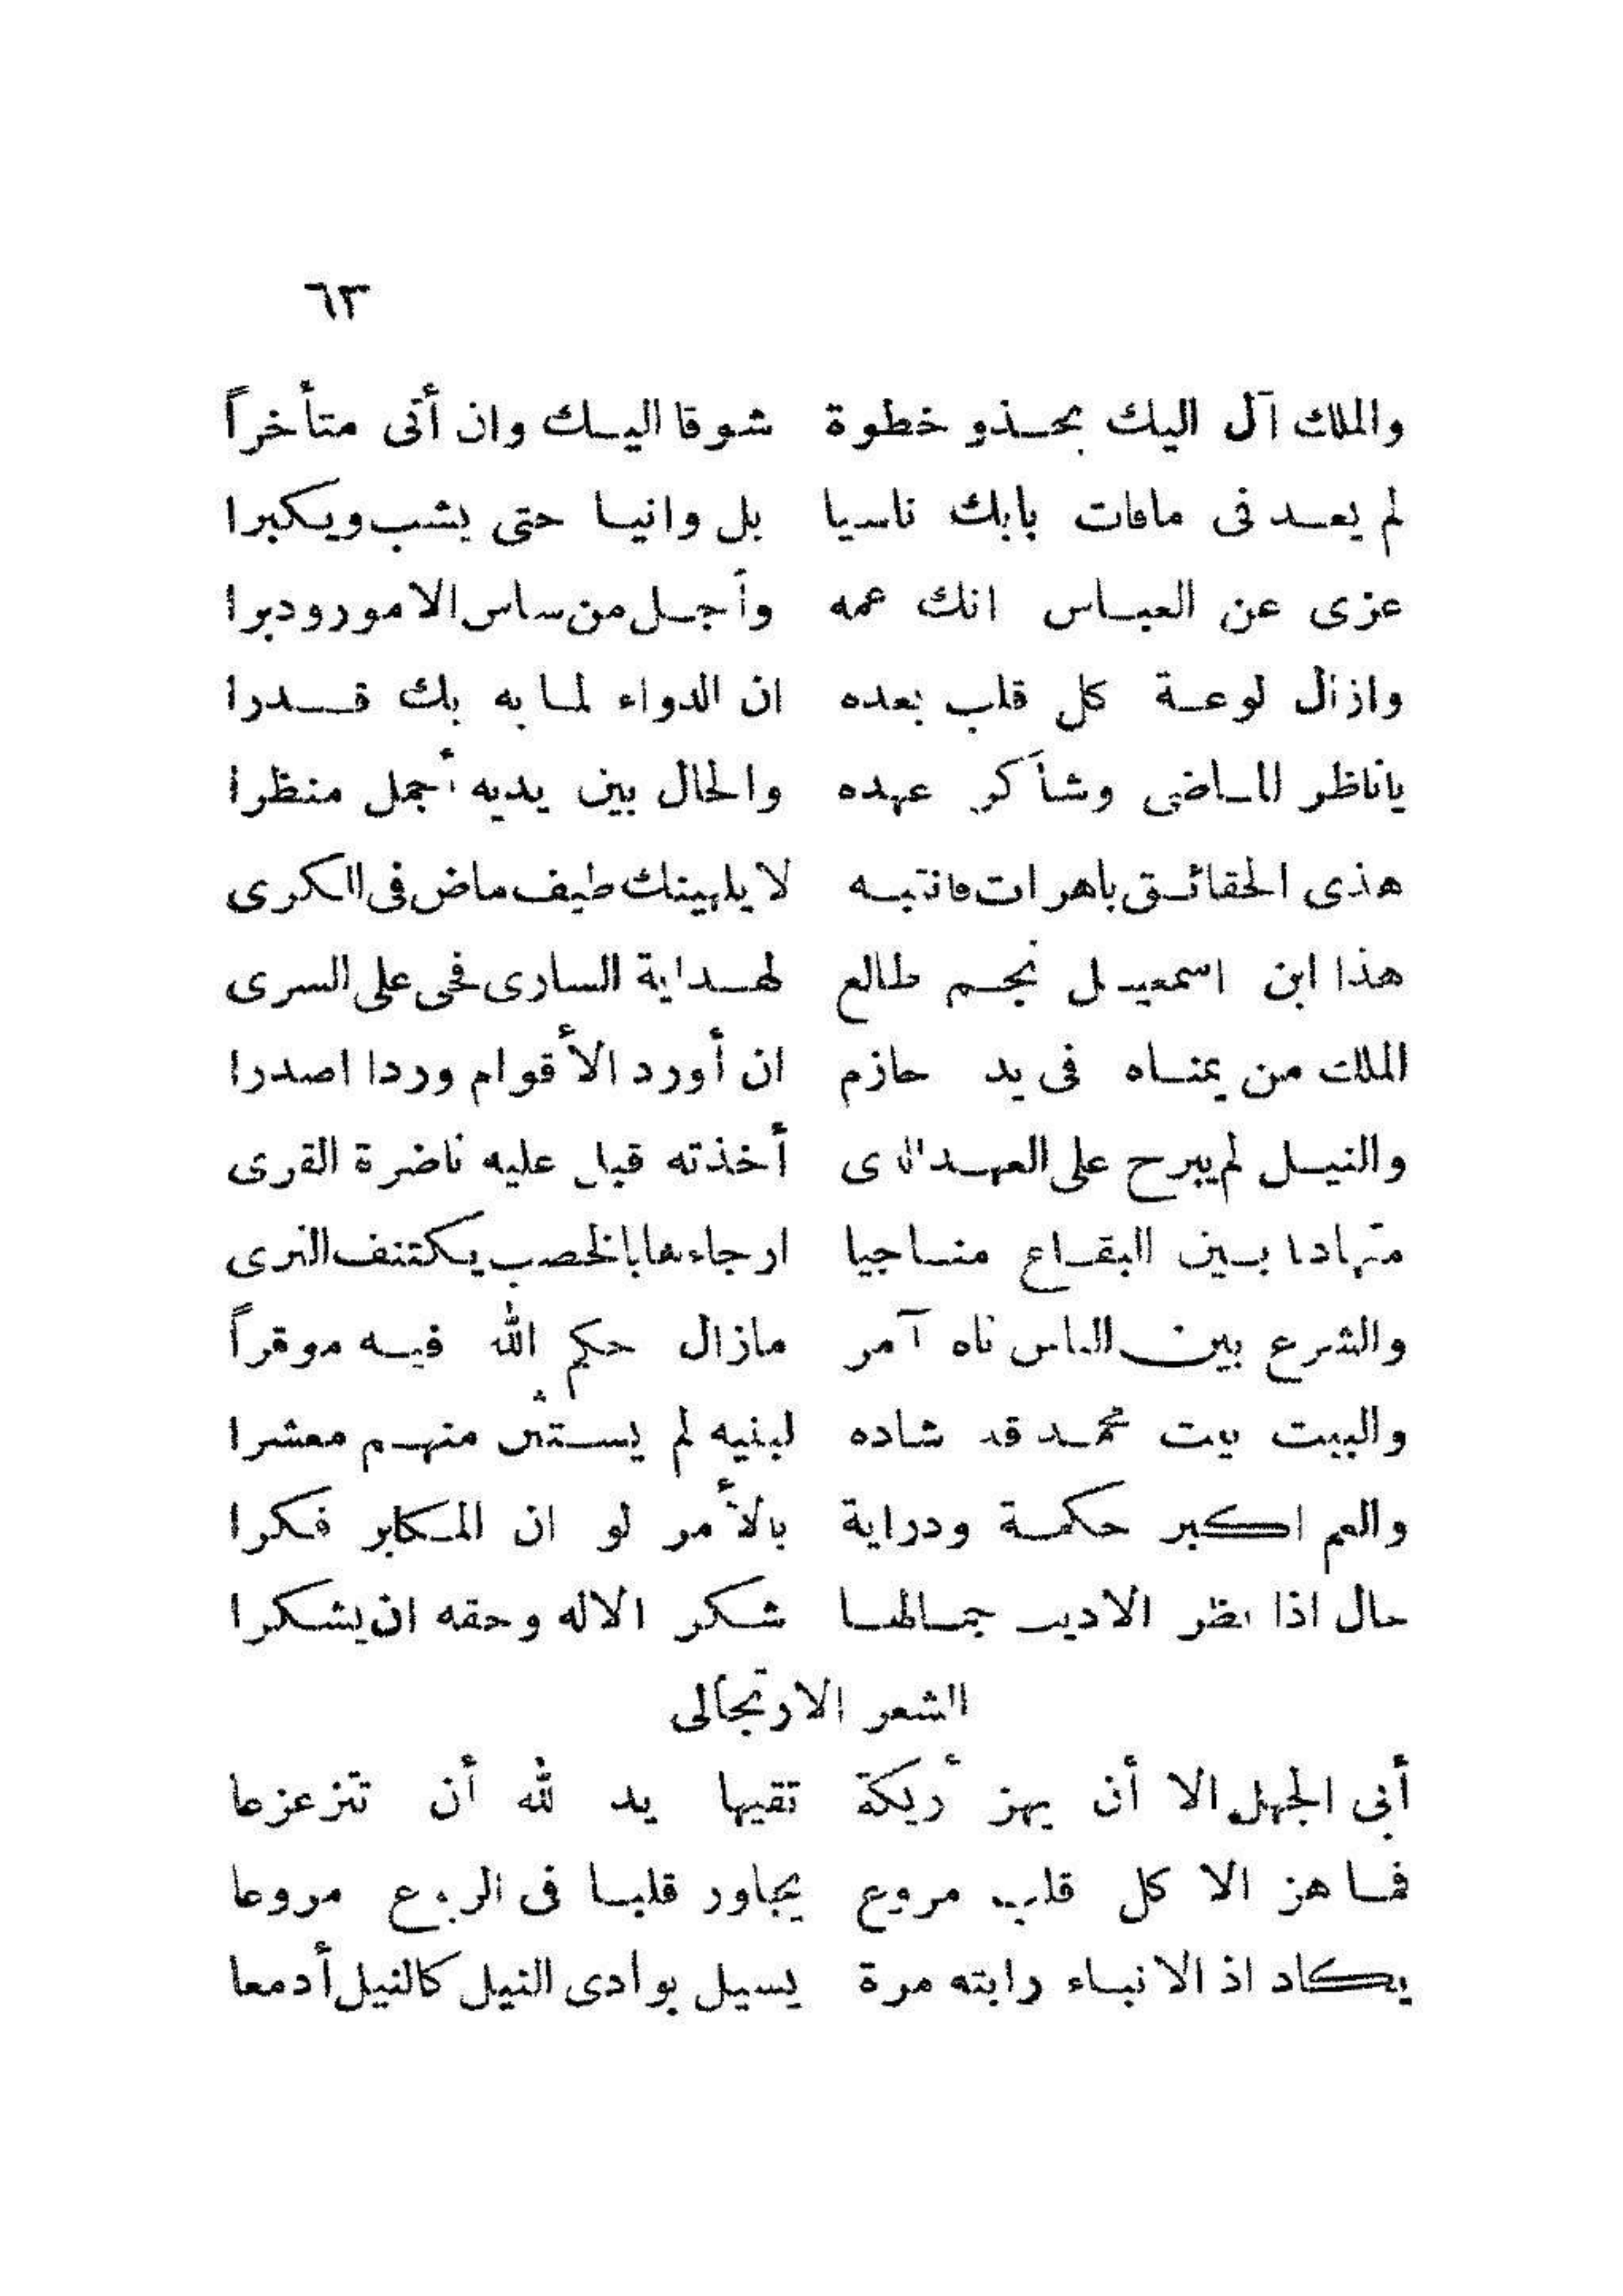 ٦٣
والملك آل اليك بحذو خطوة شوقا اليك وان أتى متأخراً
لم يعد فى مافات بابك ناسيا بل وانيا حتى يشب ويكبرا
عزى عن العباس انك عمه وأجل من ساس الامور ودبرا
وازال لوعة كل قلب بعده ان الدواء لما به بك قدرا
ياناظر الماضى وشاكر عهده والحال بين يديه أجمل منظرا
هذى الحقائق باهرات فانتبه لا يلهينك طيف ماض فى الكرى
هذا ابن اسمعيل نجم طالع لهداية السارى فحى على السرى
الملك من يمناه فى يد حازم ان أورد الأقوام وردا اصدرا
والنيل لم يبرح على العهد الذى أخذته قبل عليه ناضرة القرى
متهاديا بين البقاع مناجيا ارجاءها بالخصب يكتنف الثرى
والشرع بين الناس ناه آمر مازال حكم الله فيه موقراً
والبيت بيت محمد قد شاده لبنيه لم يستثن منهم معشرا
والعم اكبر حكمة ودراية بالأمر لو ان المكابر فكرا
حال اذا نظر الاديب جمالها شكر الاله وحقه ان يشكرا
الشعر الارتجالى
أبى الجهل الا أن يهز أريكة تقيها يد لله أن تتزعزعا
فما هز الا كل قلب مروع يجاور قلبا فى الربوع مروعا
يكاد اذ الانباء رابته مرة يسيل بوادى النيل كالنيل أدمعا